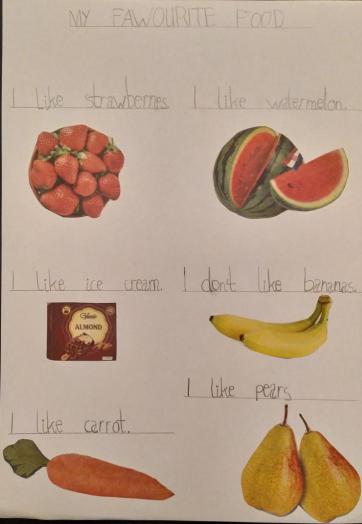 MY FAWOURITE FOOD
I like strawberries
I like watermelon.
I like ice cream.
I don't like bananas.
Classic
ALMOND
I like pears
I like carrot.